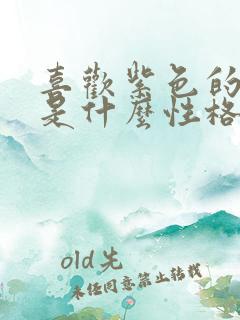 喜歡紫色的
是什麼性格
old先
未任同意禁止转载